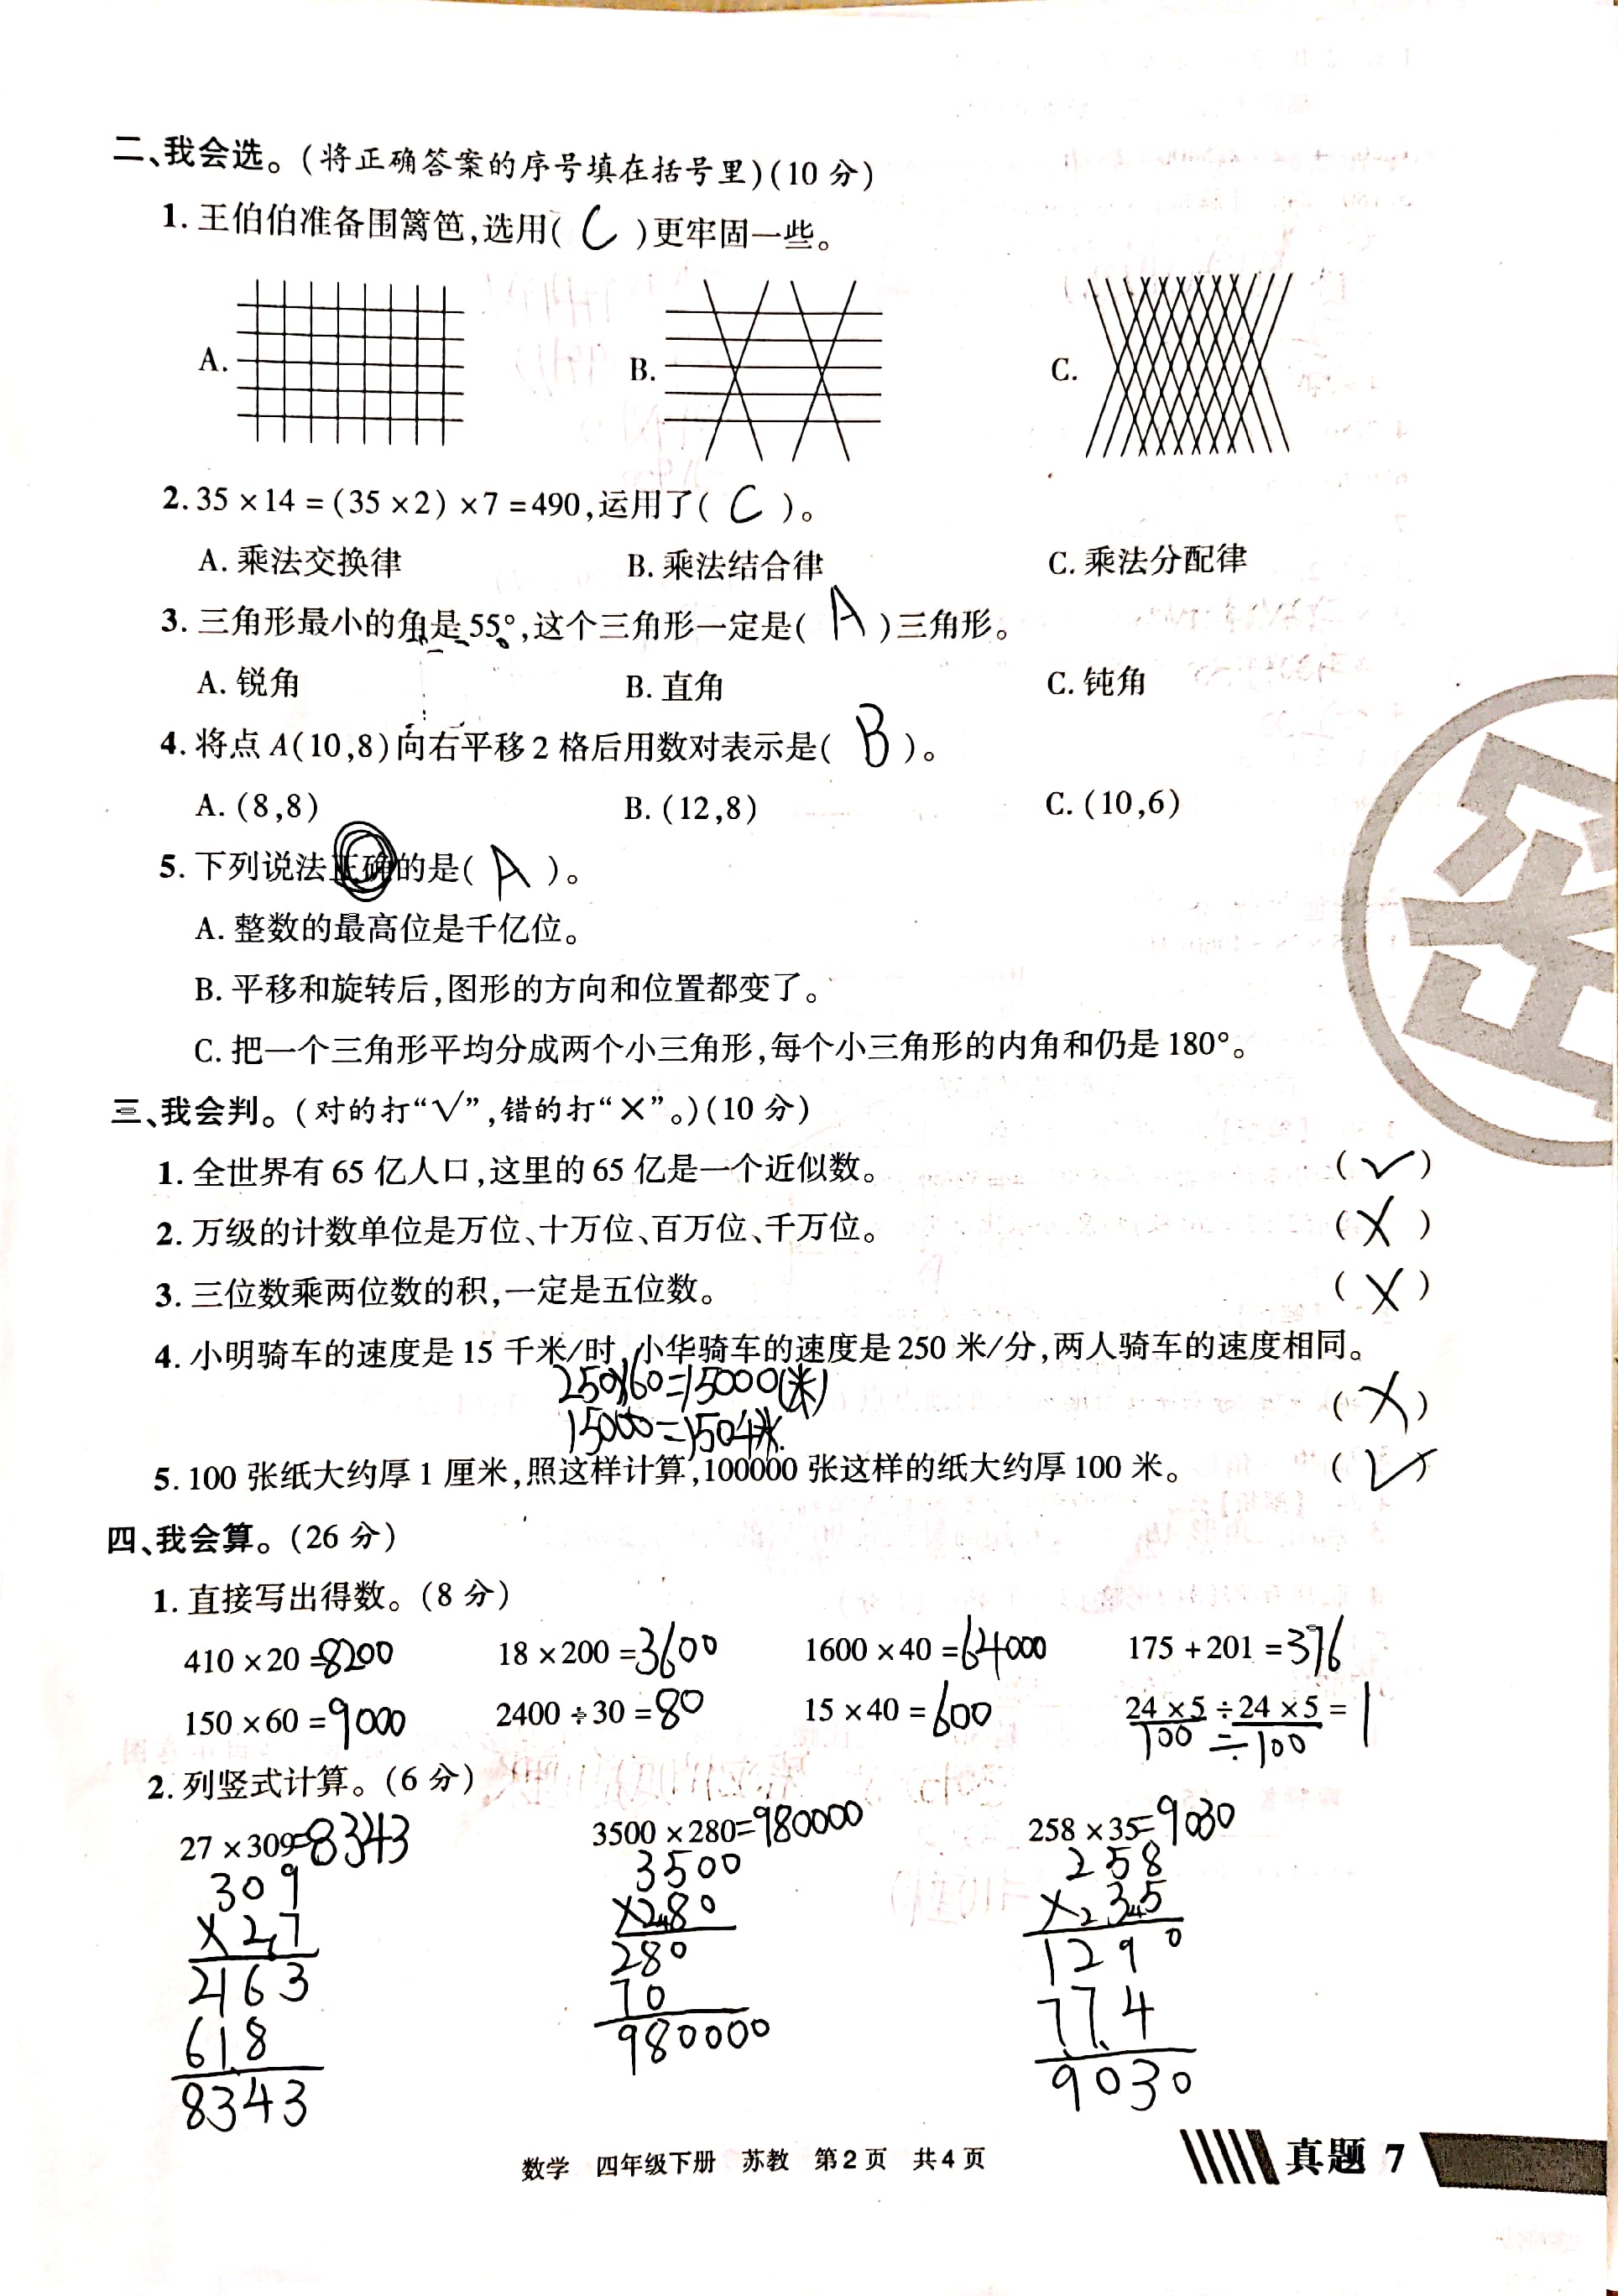 二、我会选。(将正确答案的序号填在括号里)(10 分)
1. 王伯伯准备围篱笆,选用( C )更牢固一些。
A. B. C.
2. 35 × 14 = (35 × 2) × 7 = 490,运用了( C )。
A. 乘法交换律 B. 乘法结合律 C. 乘法分配律
3. 三角形最小的角是 55°,这个三角形一定是( A )三角形。
A. 锐角 B. 直角 C. 钝角
4. 将点 A(10,8)向右平移 2 格后用数对表示是( B )。
A. (8,8) B. (12,8) C. (10,6)
5. 下列说法正确的是( A )。
A. 整数的最高位是千亿位。
B. 平移和旋转后,图形的方向和位置都变了。
C. 把一个三角形平均分成两个小三角形,每个小三角形的内角和仍是 180°。
三、我会判。(对的打“√”,错的打“×”。)(10 分)
1. 全世界有 65 亿人口,这里的 65 亿是一个近似数。 (√)
2. 万级的计数单位是万位、十万位、百万位、千万位。 (×)
3. 三位数乘两位数的积,一定是五位数。 (×)
4. 小明骑车的速度是 15 千米/时,小华骑车的速度是 250 米/分,两人骑车的速度相同。
250×60=15000(米)
(×)
15000=150千米
5. 100 张纸大约厚 1 厘米,照这样计算,100000 张这样的纸大约厚 100 米。 (√)
四、我会算。(26 分)
1. 直接写出得数。(8 分)
410 × 20 = 8200 18 × 200 = 3600 1600 × 40 = 64000 175 + 201 = 376
150 × 60 = 9000 2400 ÷ 30 = 80 15 × 40 = 600 24 × 5 ÷ 24 × 5 = 1
100 ÷ 100
2. 列竖式计算。(6 分)
27 × 309 = 8343 3500 × 280 = 980000 258 × 35 = 9030
309 3500 258
×27 ×280 ×35
2163 280 1290
618 70 774
8343 980000 9030
数学 四年级下册 苏教 第 2 页 共 4 页
真题 7